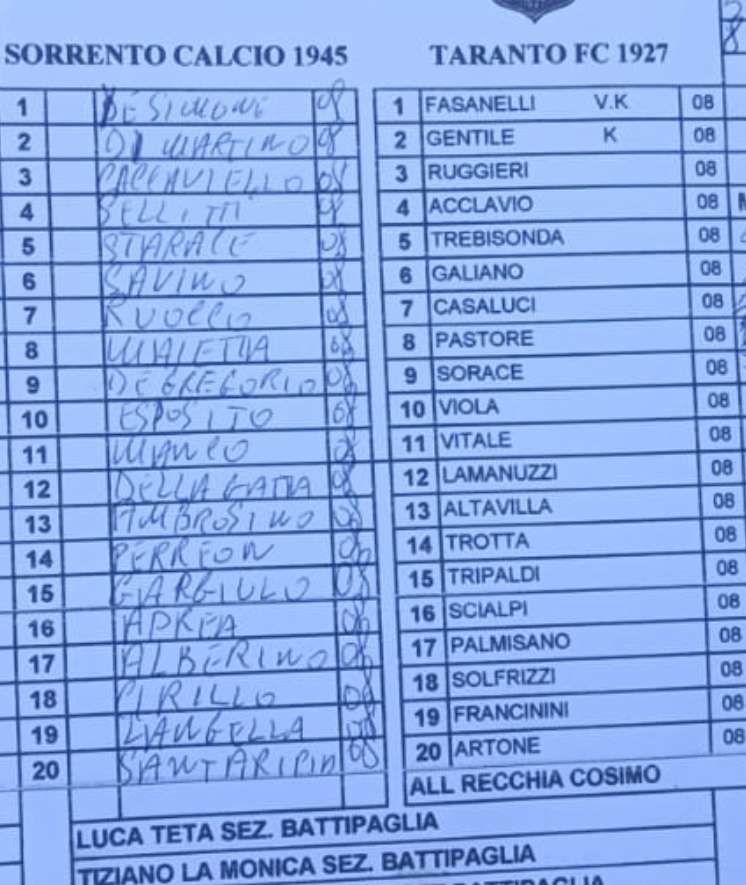 SORRENTO CALCIO 1945
1 DE SIMONE 08
2 DI MARTINO 08
3 CACCAVIELLO 08
4 SELLITTI 08
5 STARACE 08
6 SAVINO 08
7 RUOCCO 08
8 MALETTA 08
9 DE GREGORIO 08
10 ESPOSITO 08
11 MANCO 08
12 DELLA GATTA 08
13 AMBROSINO 08
14 PERREON 08
15 GARGIULO 08
16 APREA 08
17 ALBERINO 08
18 CIRILLO 08
19 LANGELLA 08
20 08
TARANTO FC 1927
1 FASANELLI V.K 08
2 GENTILE K 08
3 RUGGIERI 08
4 ACCLAVIO 08
5 TREBISONDA 08
6 GALIANO 08
7 CASALUCI 08
8 PASTORE 08
9 SORACE 08
10 VIOLA 08
11 VITALE 08
12 LAMANUZZI 08
13 ALTAVILLA 08
14 TROTTA 08
15 TRIPALDI 08
16 SCIALPI 08
17 PALMISANO 08
18 SOLFRIZZI 08
19 FRANCININI 08
20 ARTONE 08
ALL RECCHIA COSIMO
LUCA TETA SEZ. BATTIPAGLIA
TIZIANO LA MONICA SEZ. BATTIPAGLIA
BATTIPAGLIA